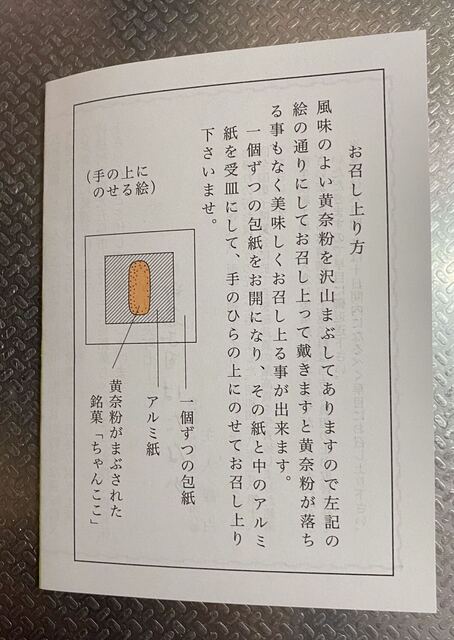 お召し上り方
風味のよい黄奈粉を沢山まぶしてありますので左記の
絵の通りにしてお召し上って戴きますと黄奈粉が落ち
る事もなく美味しくお召し上る事が出来ます。
一個ずつの包紙をお開になり、その紙と中のアルミ
紙を受皿にして、手のひらの上にのせてお召し上り
下さいませ。
(手の上に
のせる絵)
一個ずつの包紙
アルミ紙
黄奈粉がまぶされた
銘菓「ちゃんここ」